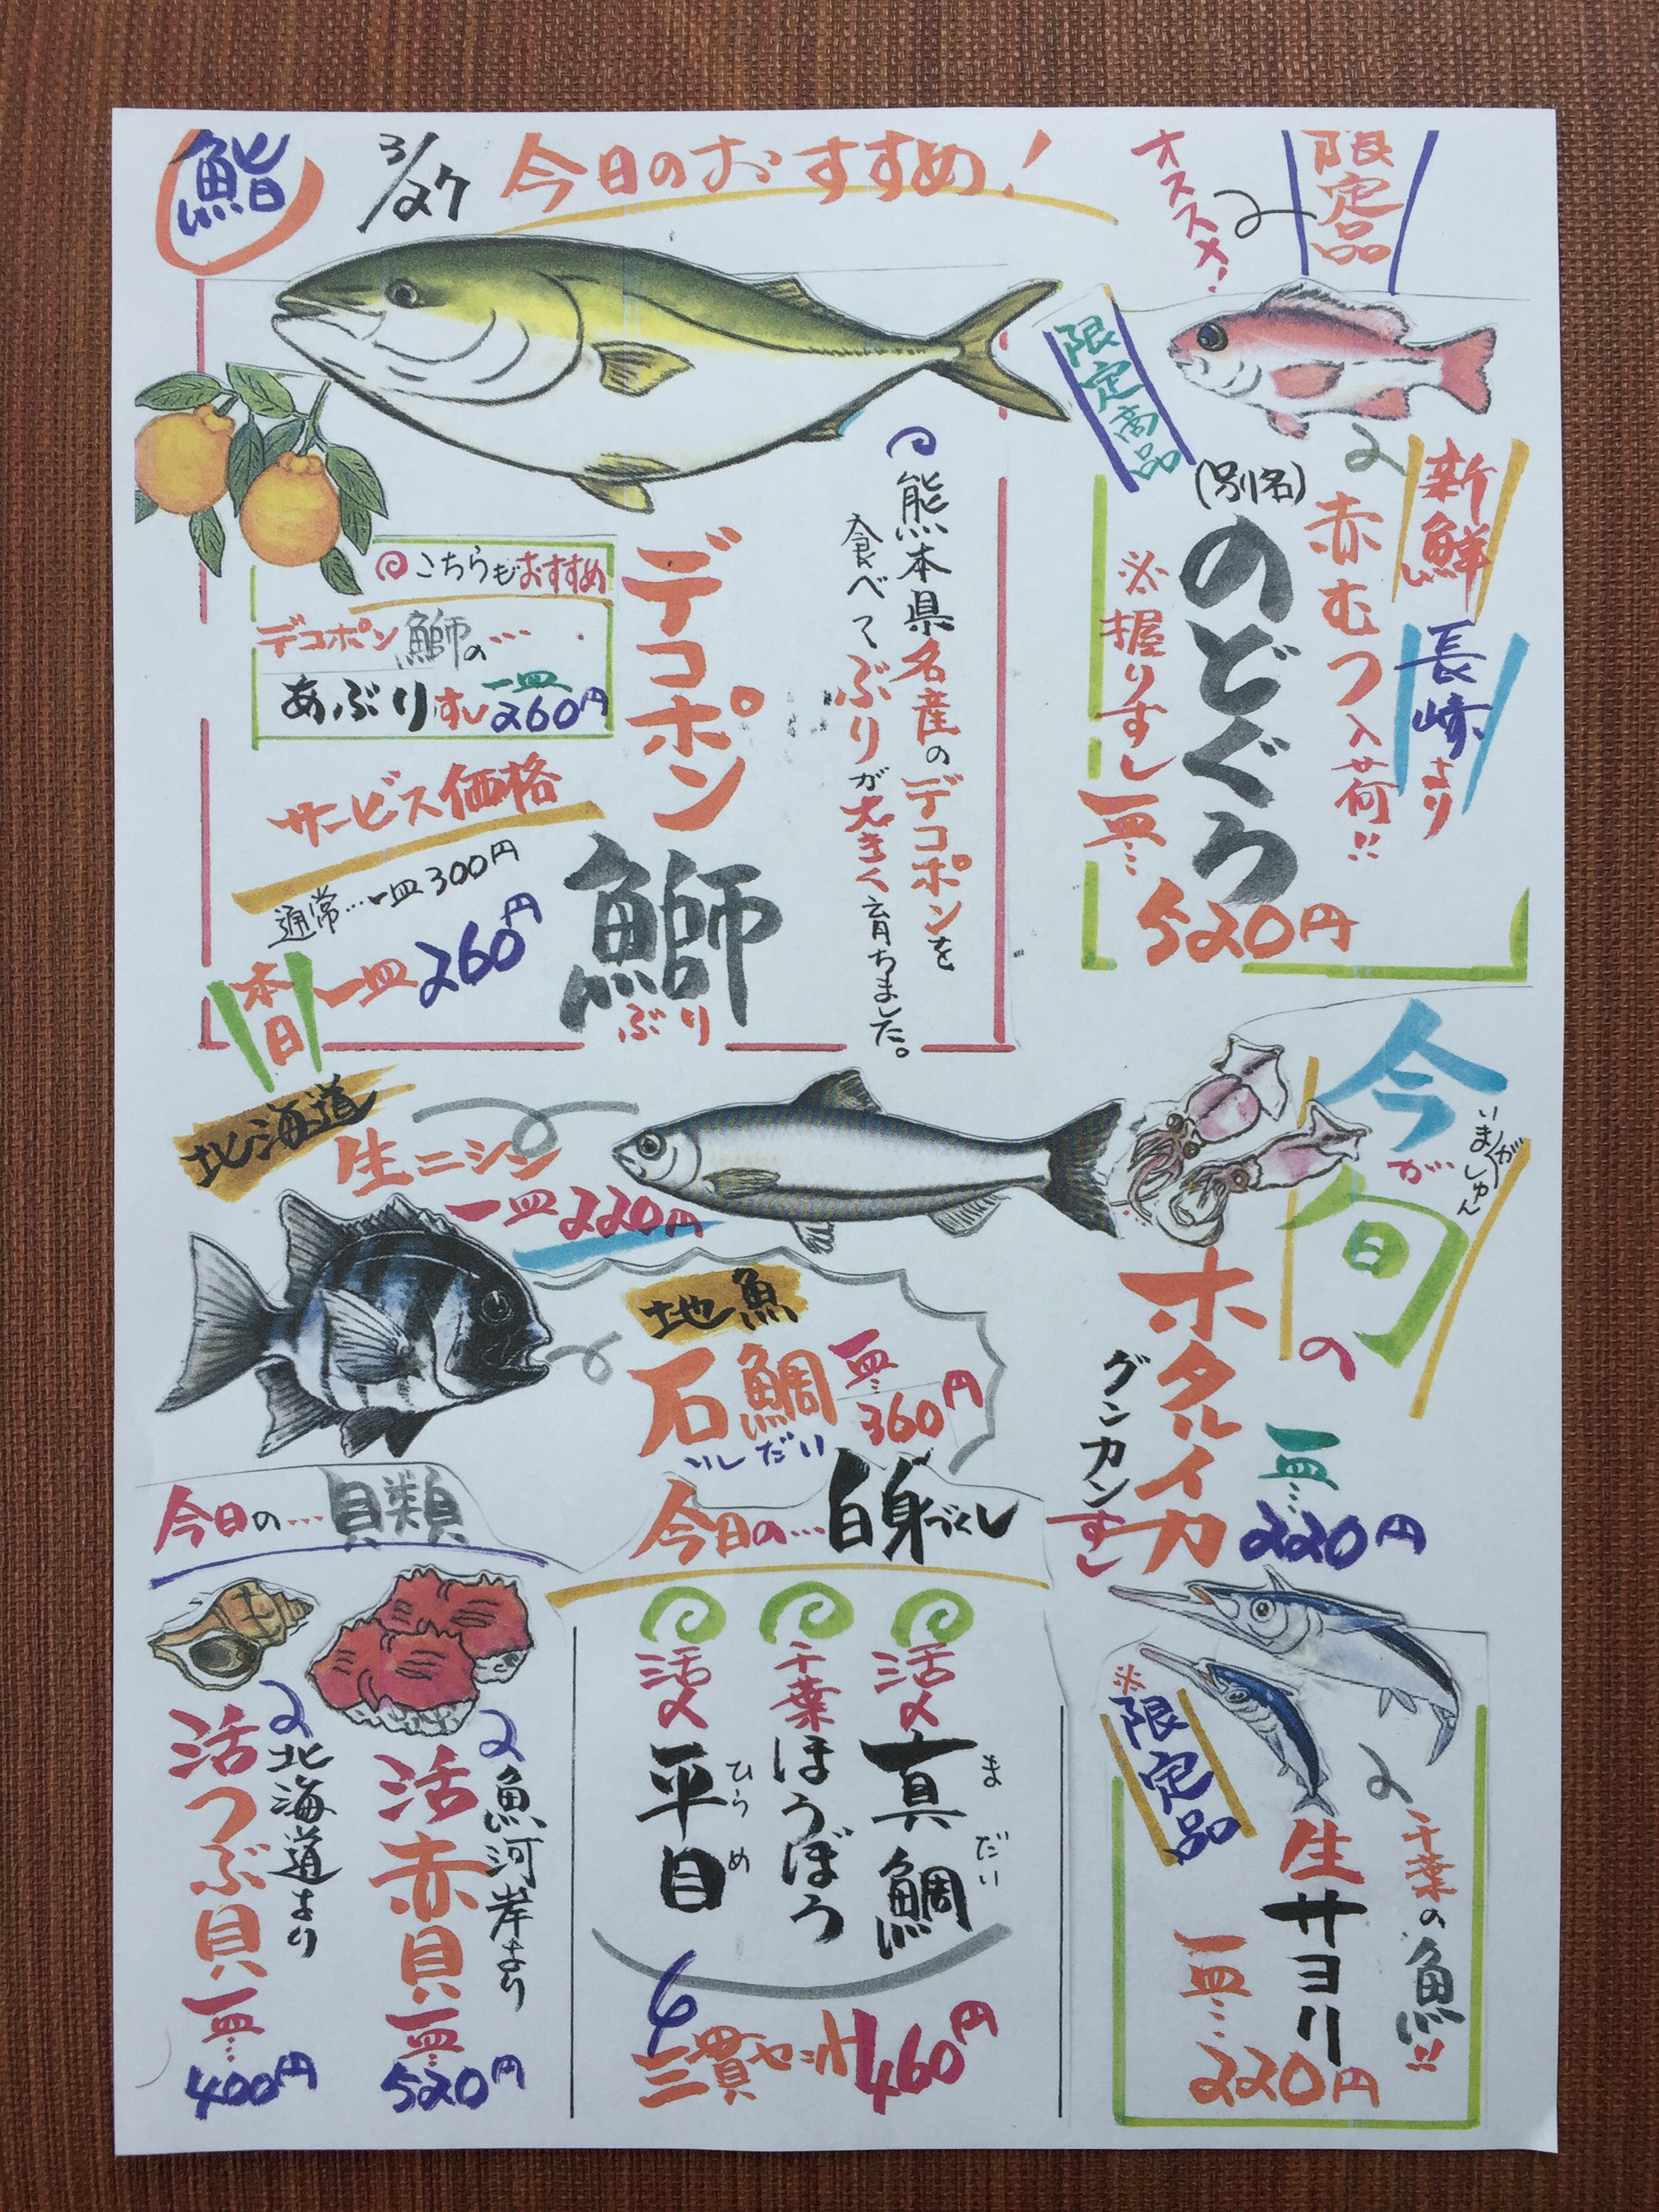 鮨
3/27
今日のおすすめ!
限定品
オススメ!
限定商品
新鮮
長崎より
赤むつ入荷!!
(別名)
のどぐろ
※握りずし
一皿…
520円
熊本県名産のデコポンを
食べてぶりが大きく育ちました。
デコポン
鰤
ぶり
こちらもおすすめ
デコポン鰤の…
あぶりずし一皿260円
サービス価格
通常…一皿300円
本日
一皿260円
北海道
生ニシン
一皿220円
今が旬の
いまがしゅん
ホタルイカ
グンカンずし
一皿…
220円
地魚
石鯛
いしだい
一皿…
360円
今日の…貝類
北海道より
活つぶ貝
一皿…
400円
魚河岸より
活赤貝
一皿…
520円
今日の…白身づくし
活〆真鯛
まだい
千葉ほうぼう
活〆平目
ひらめ
三貫セット460円
※限定品
千葉の魚!!
生サヨリ
一皿…
220円